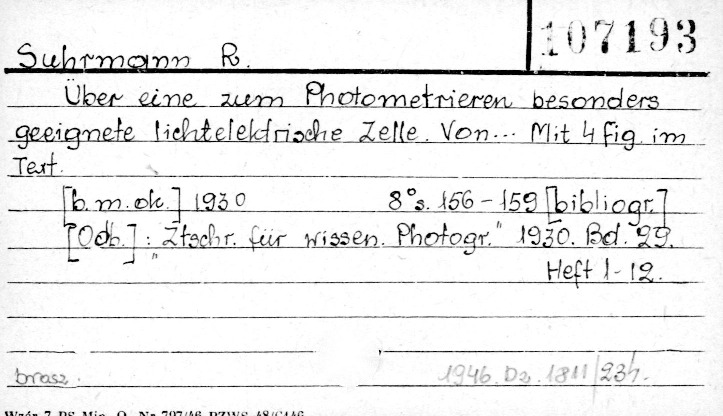 107193
Suhrmann R.
Über eine zum Photometrieren besonders
geeignete lichtelektrische Zelle. Von... Mit 4 fig. im
Text.
[b.m.ok.] 1930 8°s. 156-159 [bibliogr.]
[Odb.]: "Ztschr. für wissen. Photogr." 1930. Bd. 29.
Heft 1-12.
brosz. 1946. Dz. 1811/234.
Wzór 7 PS Min. O. Nr 797/46 PZWS 48/C446